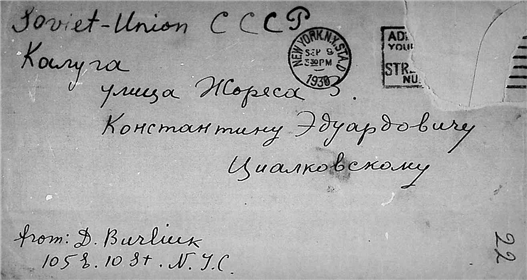 Soviet-Union СССР
Калуга
улица Жореса 3.
Константину Эдуардовичу
Циалковскому
NEW YORK, N.Y. STA. D
SEP 9
30 PM
1930
AD
YOUR
STR
NU
from: D. Burliuk
105 E. 10 St. N.Y.C.
22